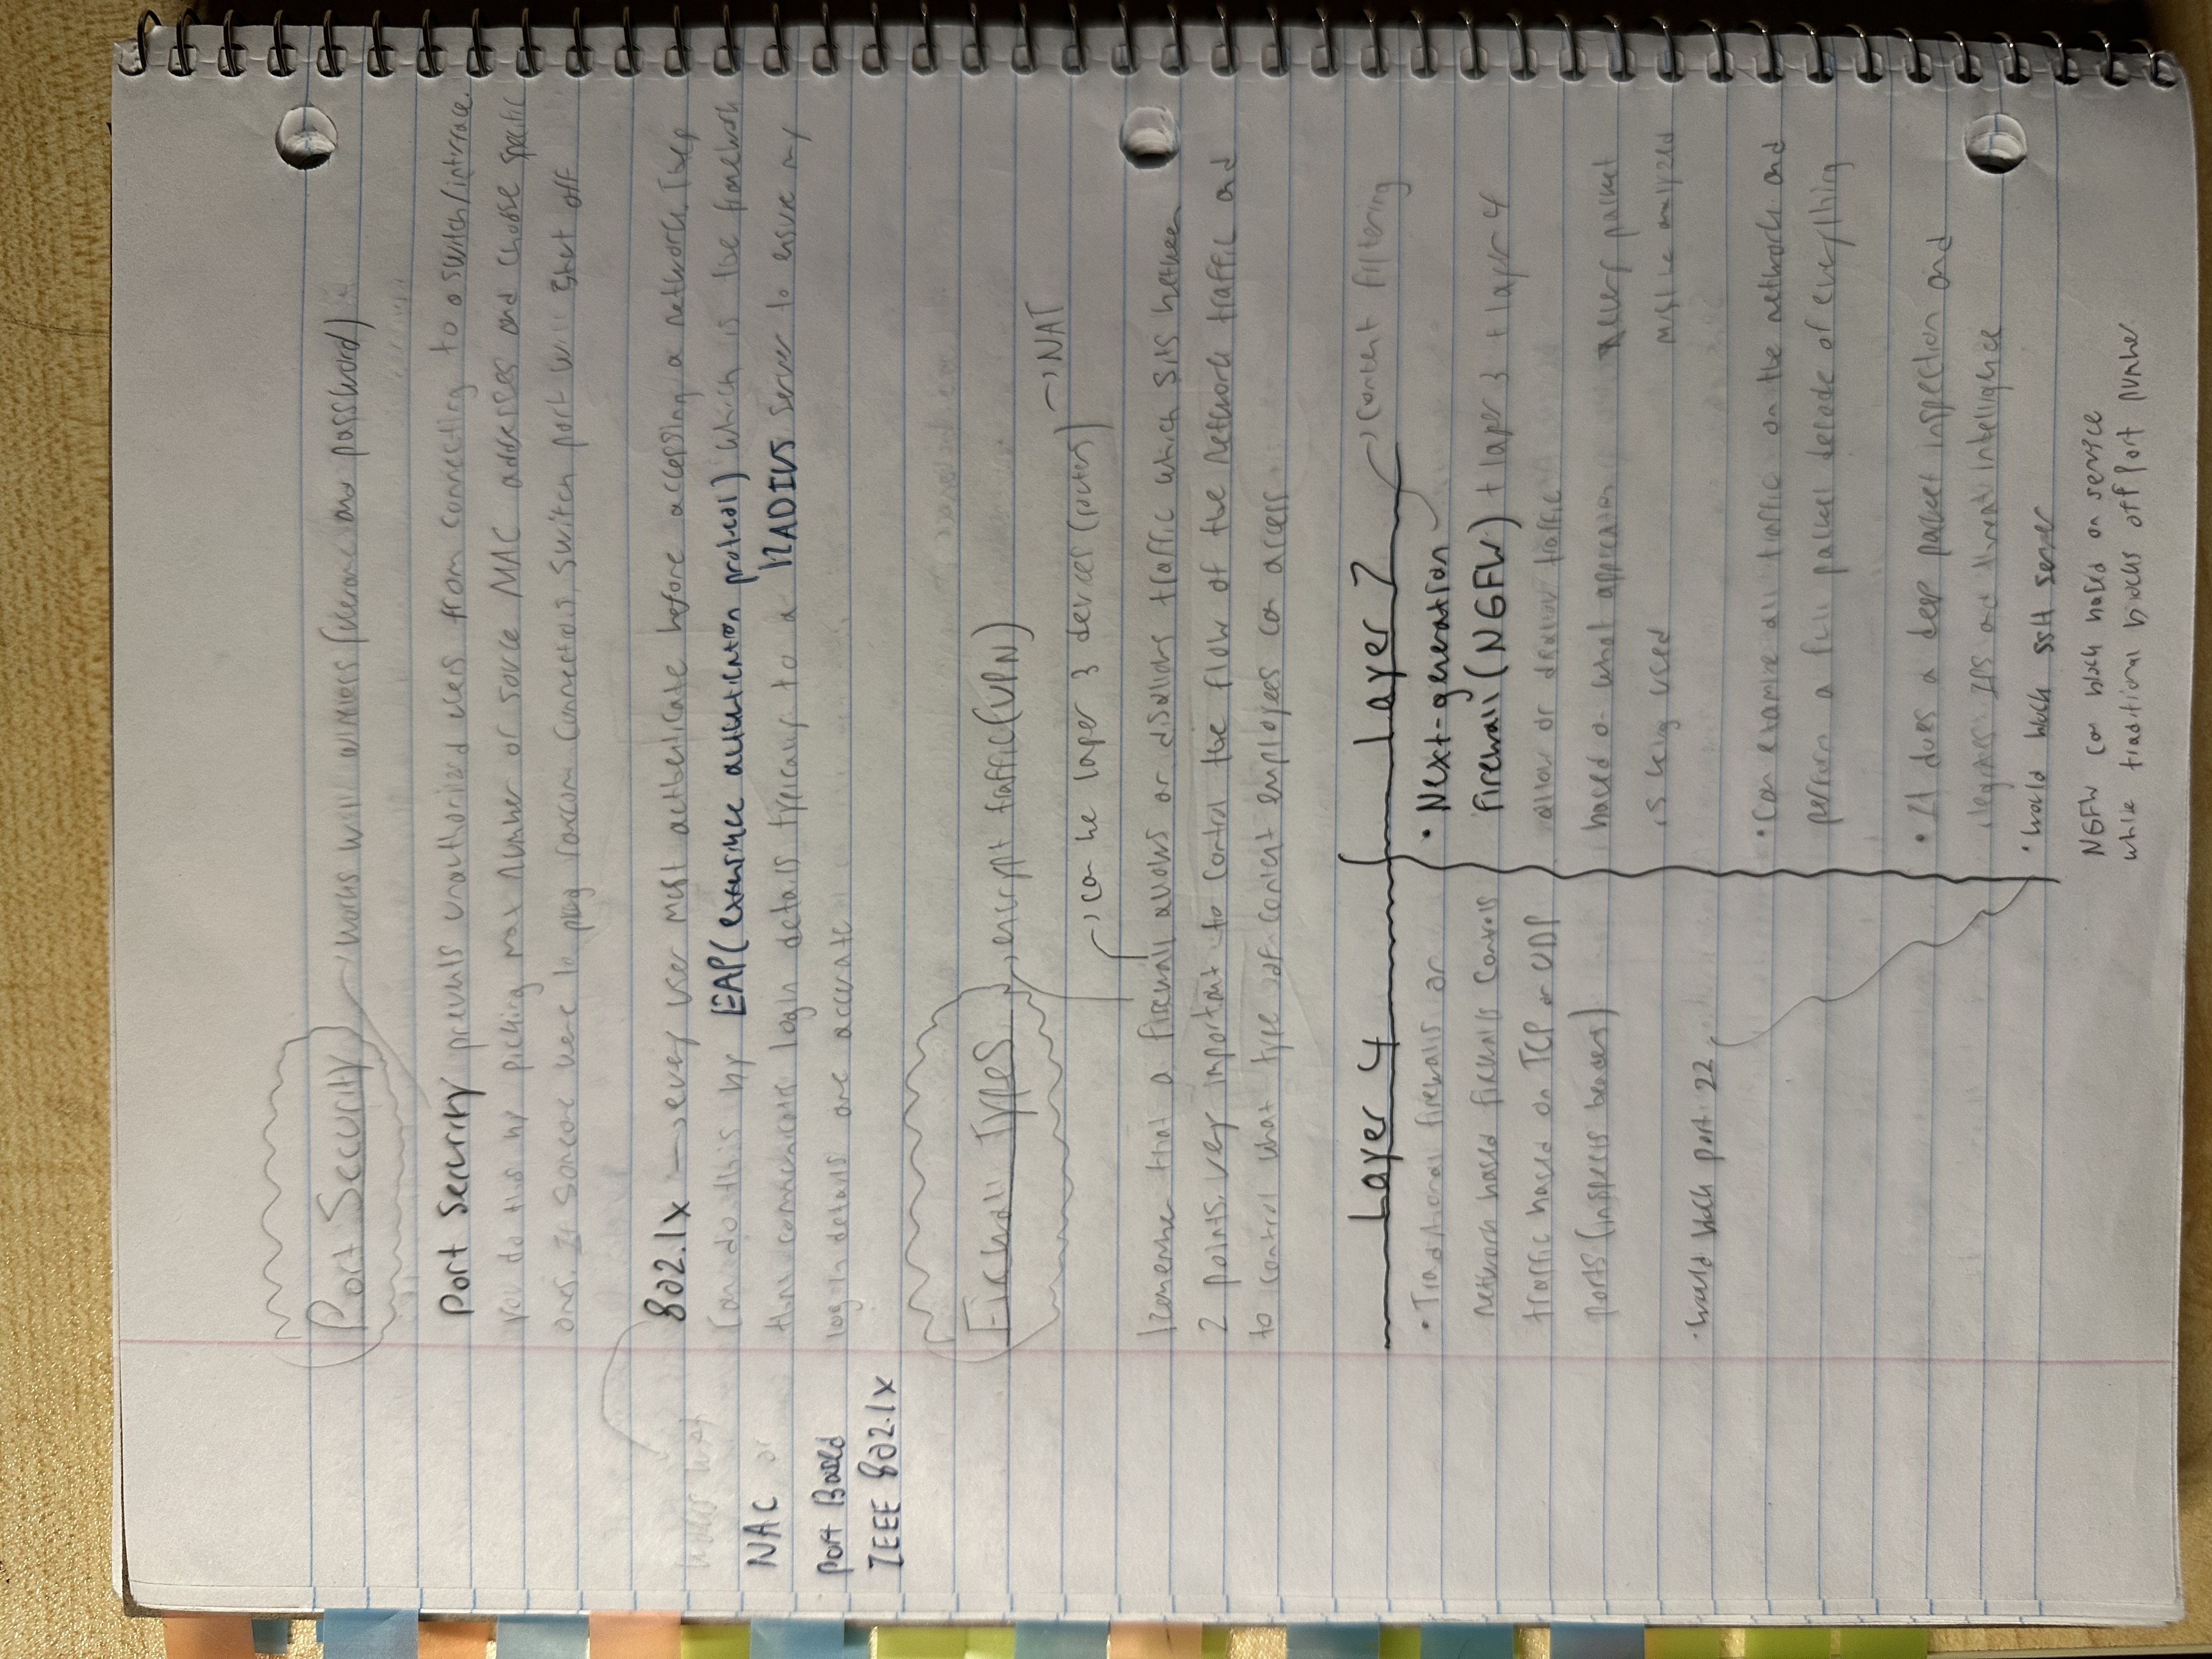 Port Security → works with wireless (username and password)
Port Security prevents unauthorized users from connecting to a switch/interface.
You do this by picking max number of source MAC addresses and choose specific
ones. If someone were to plug random connections, switch port will shut off
802.1x → every user must authenticate before accessing a network. They
can do this by EAP (extensince authentication protocol) which is the framework
that communicates login details typically to a RADIUS server to ensure my
log in details are accurate
works with
NAC or
Port Based
IEEE 802.1x
Firewall Types → encrypt traffic (VPN)
→ NAT
→ can be layer 3 devices (routers)
Remember that a firewall allows or disallows traffic which sits between
2 points. very important to control the flow of the network traffic and
to control what type of content employees can access
Layer 4
• Traditional firewalls or
network based firewalls controls
traffic based on TCP or UDP
ports (inspects headers)
• would block port 22
Layer 7 → content filtering
• Next-generation
firewall (NGFW) + layer 3 + layer 4
allow or disallow traffic
based on what application
is being used
every packet
must be analyzed
• Can examine all traffic on the network and
perform a full packet decode of everything
• It does a deep packet inspection and
IPS and threat intelligence
• would block SSH server
NGFW can block based on service
while traditional blocks off port number